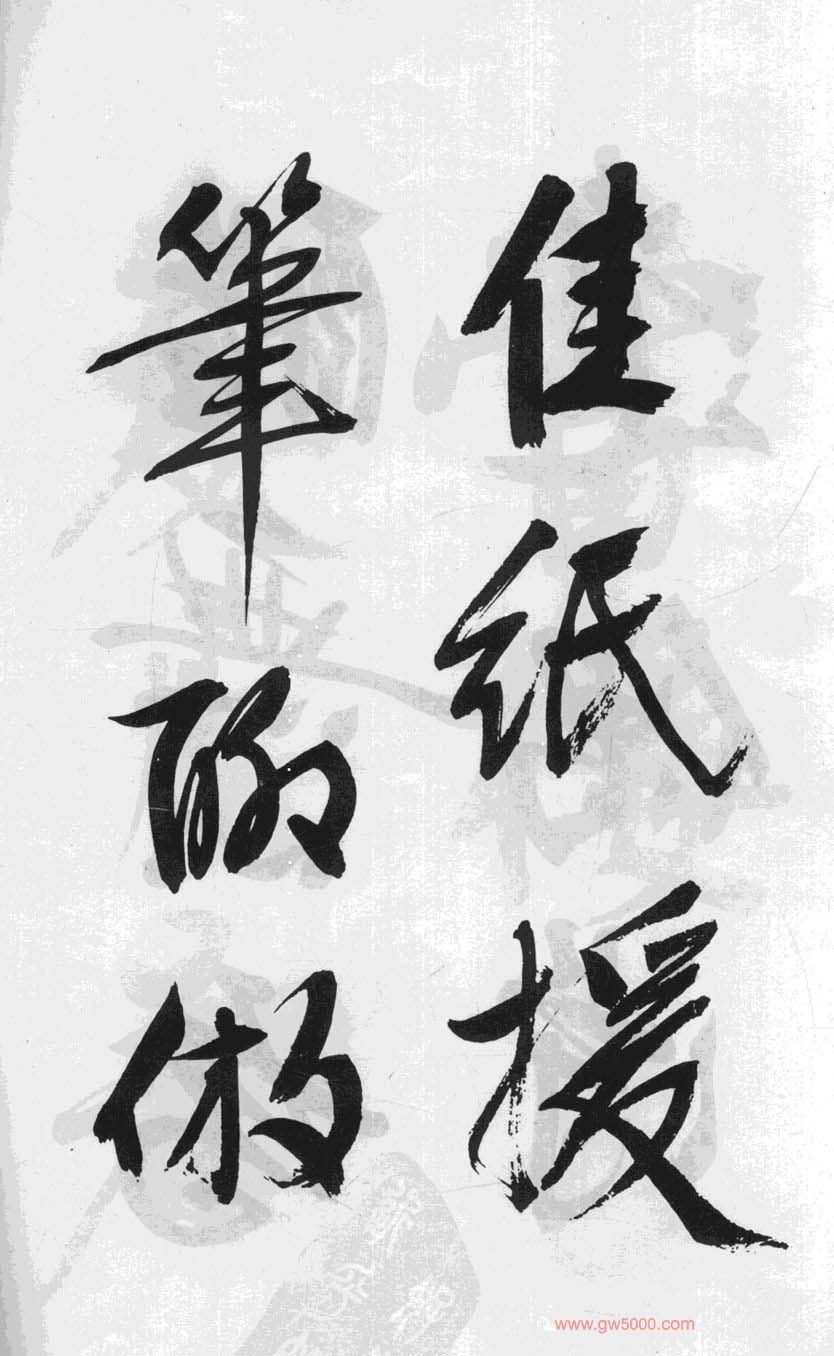 佳纸援
筆聊倣
www.gw5000.com